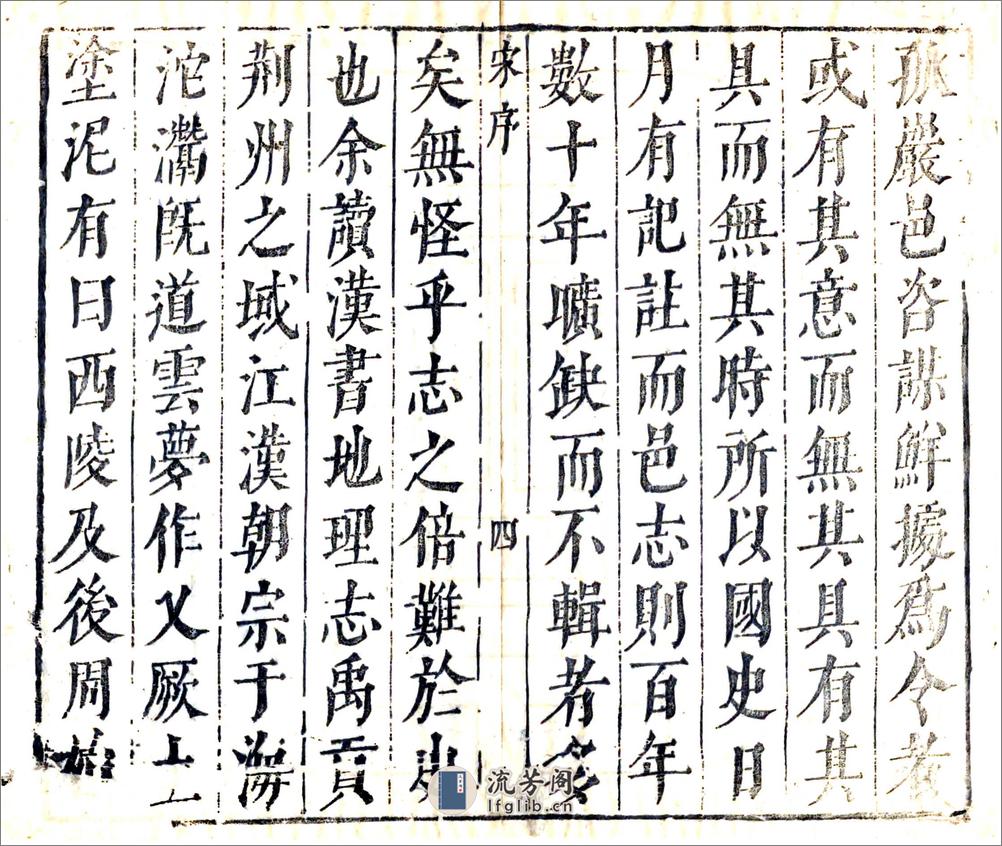 孤巖邑咨諏鮮據爲令者
或有其意而無其具有其
具而無其時所以國史日
月有記註而邑志則百年
數十年曠缺而不輯者
宋序
四
矣無怪乎志之倍難於史
也余讀漢書地理志禹貢
荆州之域江漢朝宗于海
沱灊旣道雲夢作乂厥土
塗泥有曰西陵及後周始
流芳阁
lfglib.cn